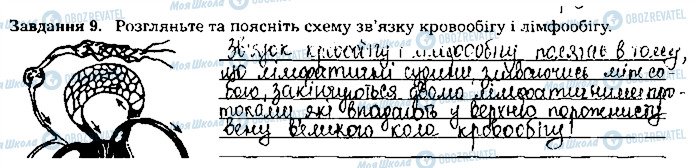 Завдання 9. Розгляньте та поясніть схему зв'язку кровообігу і лімфообігу.
Зв'язок кровообігу і лімфообігу полягає в тому,
що лімфатичні судини зливаючись між со-
бою, закінчуються двома лімфатичними про-
токами, які впадають у верхню порожнисту
вену великого кола кровообігу!